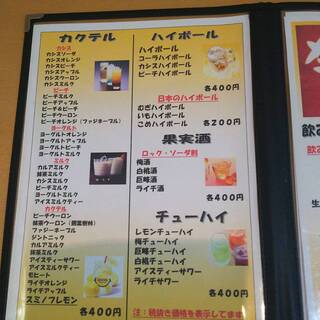 カクテル
カシス
カシスソーダ
カシスオレンジ
カシスピーチ
カシスアップル
カシスウーロン
カシスミルク
ピーチ
ピーチミルク
ピーチアップル
ピーチ&ピーチ
ピーチウーロン
ピーチオレンジ(ファジーネーブル)
ヨーグルト
ヨーグルトオレンジ
ヨーグルトアップル
ヨーグルトピーチ
ヨーグルトミルク
ミルク
カルアミルク
抹茶ミルク
カシスミルク
ピーチミルク
ヨーグルトミルク
アイスミルクティー
カクテル
ピーチウーロン
抹茶ウーロン
ファジーネーブル
ジントニック
カルアミルク
抹茶ミルク
アイスティーサワー
アイスミルクティー
モヒート
ライチオレンジ
ライチアップル
スミノフレモン
各400円
ハイボール
ハイボール
コーラハイボール
カシスハイボール
ピーチハイボール
各400円
日本のハイボール
むぎハイボール
いもハイボール
こめハイボール
各200円
果実酒
ロック・ソーダ割
梅酒
白桃酒
巨峰酒
ライチ酒
各400円
チューハイ
レモンチューハイ
梅チューハイ
巨峰チューハイ
白桃チューハイ
アイスティーサワー
ライチサワー
各400円
注:税抜き価格を表示してます
飲み